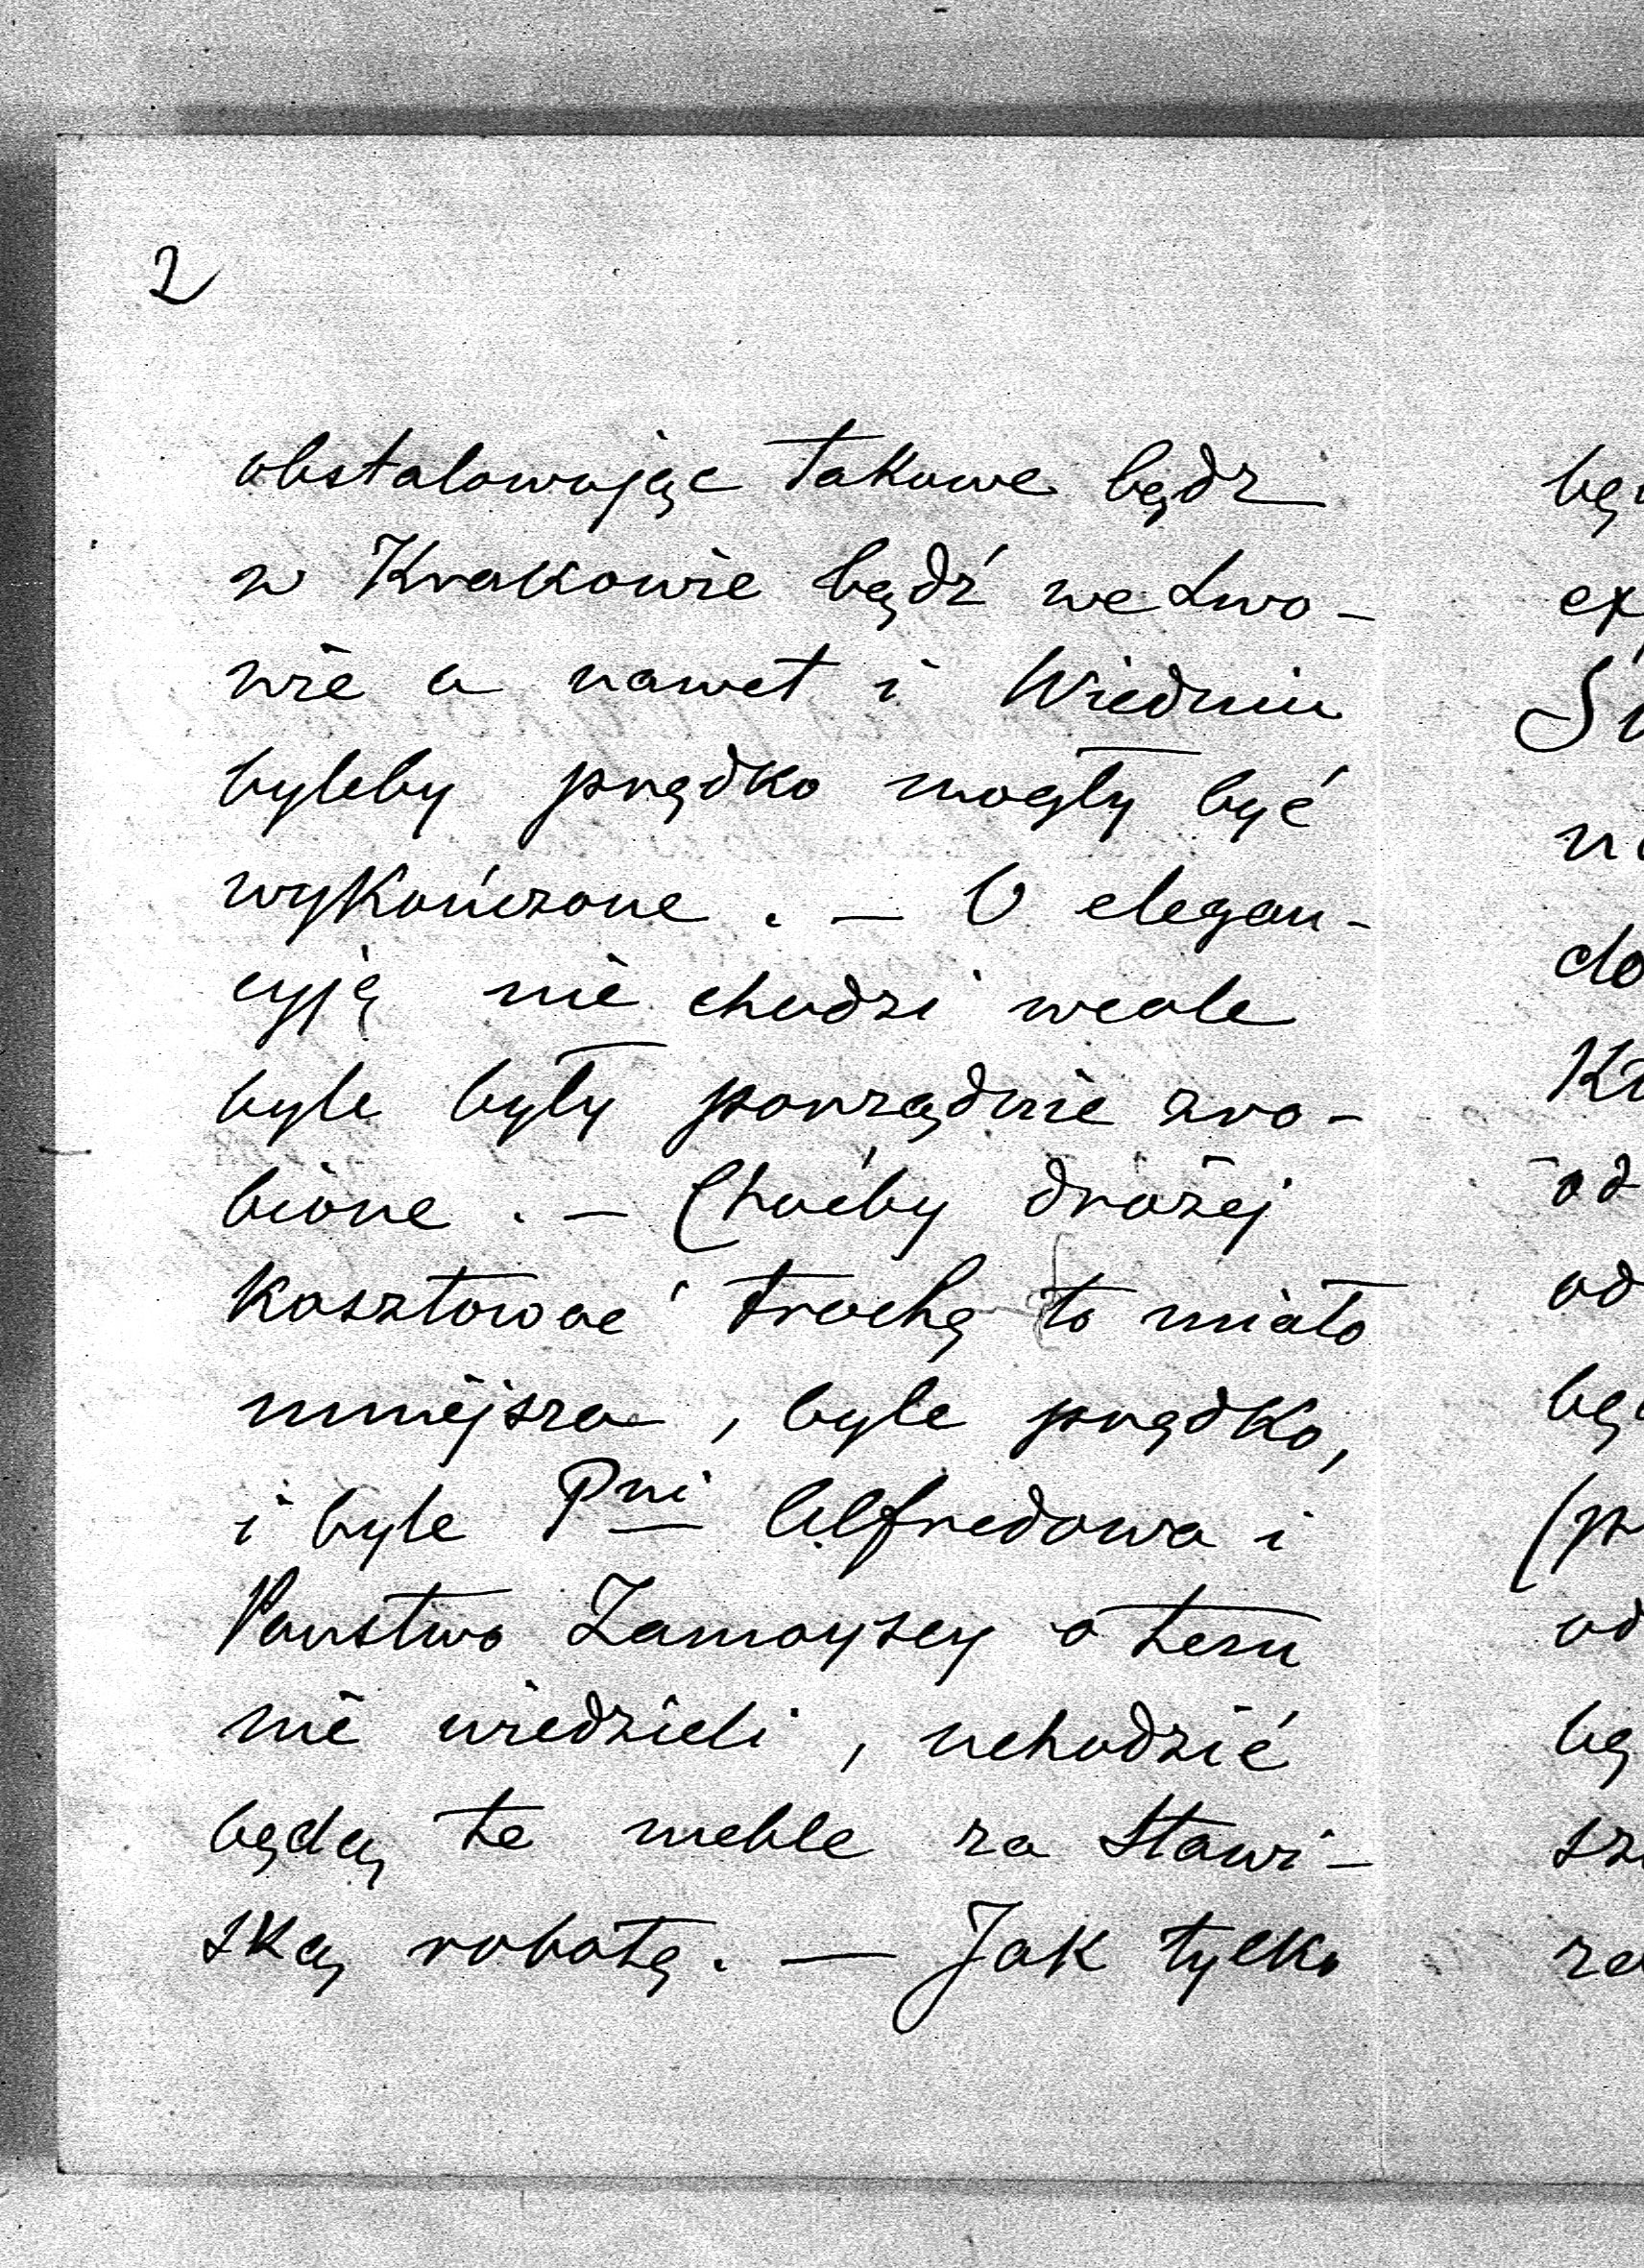 2
obstalowując takowe bądz
w Krakowie bądź we Lwo-
wie a nawet i Wiedniu
byleby prędko mogły być
wykończone. — O elegan-
cyją nie chodzi wcale
byle były porządnie zro-
bione. — Choćby drożej
kosztować trochę to miało
mniejsza, byle prędko,
i byle Pni Alfredowa i
Państwo Zamoyscy o tem
nie wiedzieli, uchodzić
będą te meble za Stawi-
ską robotę. — Jak tylko